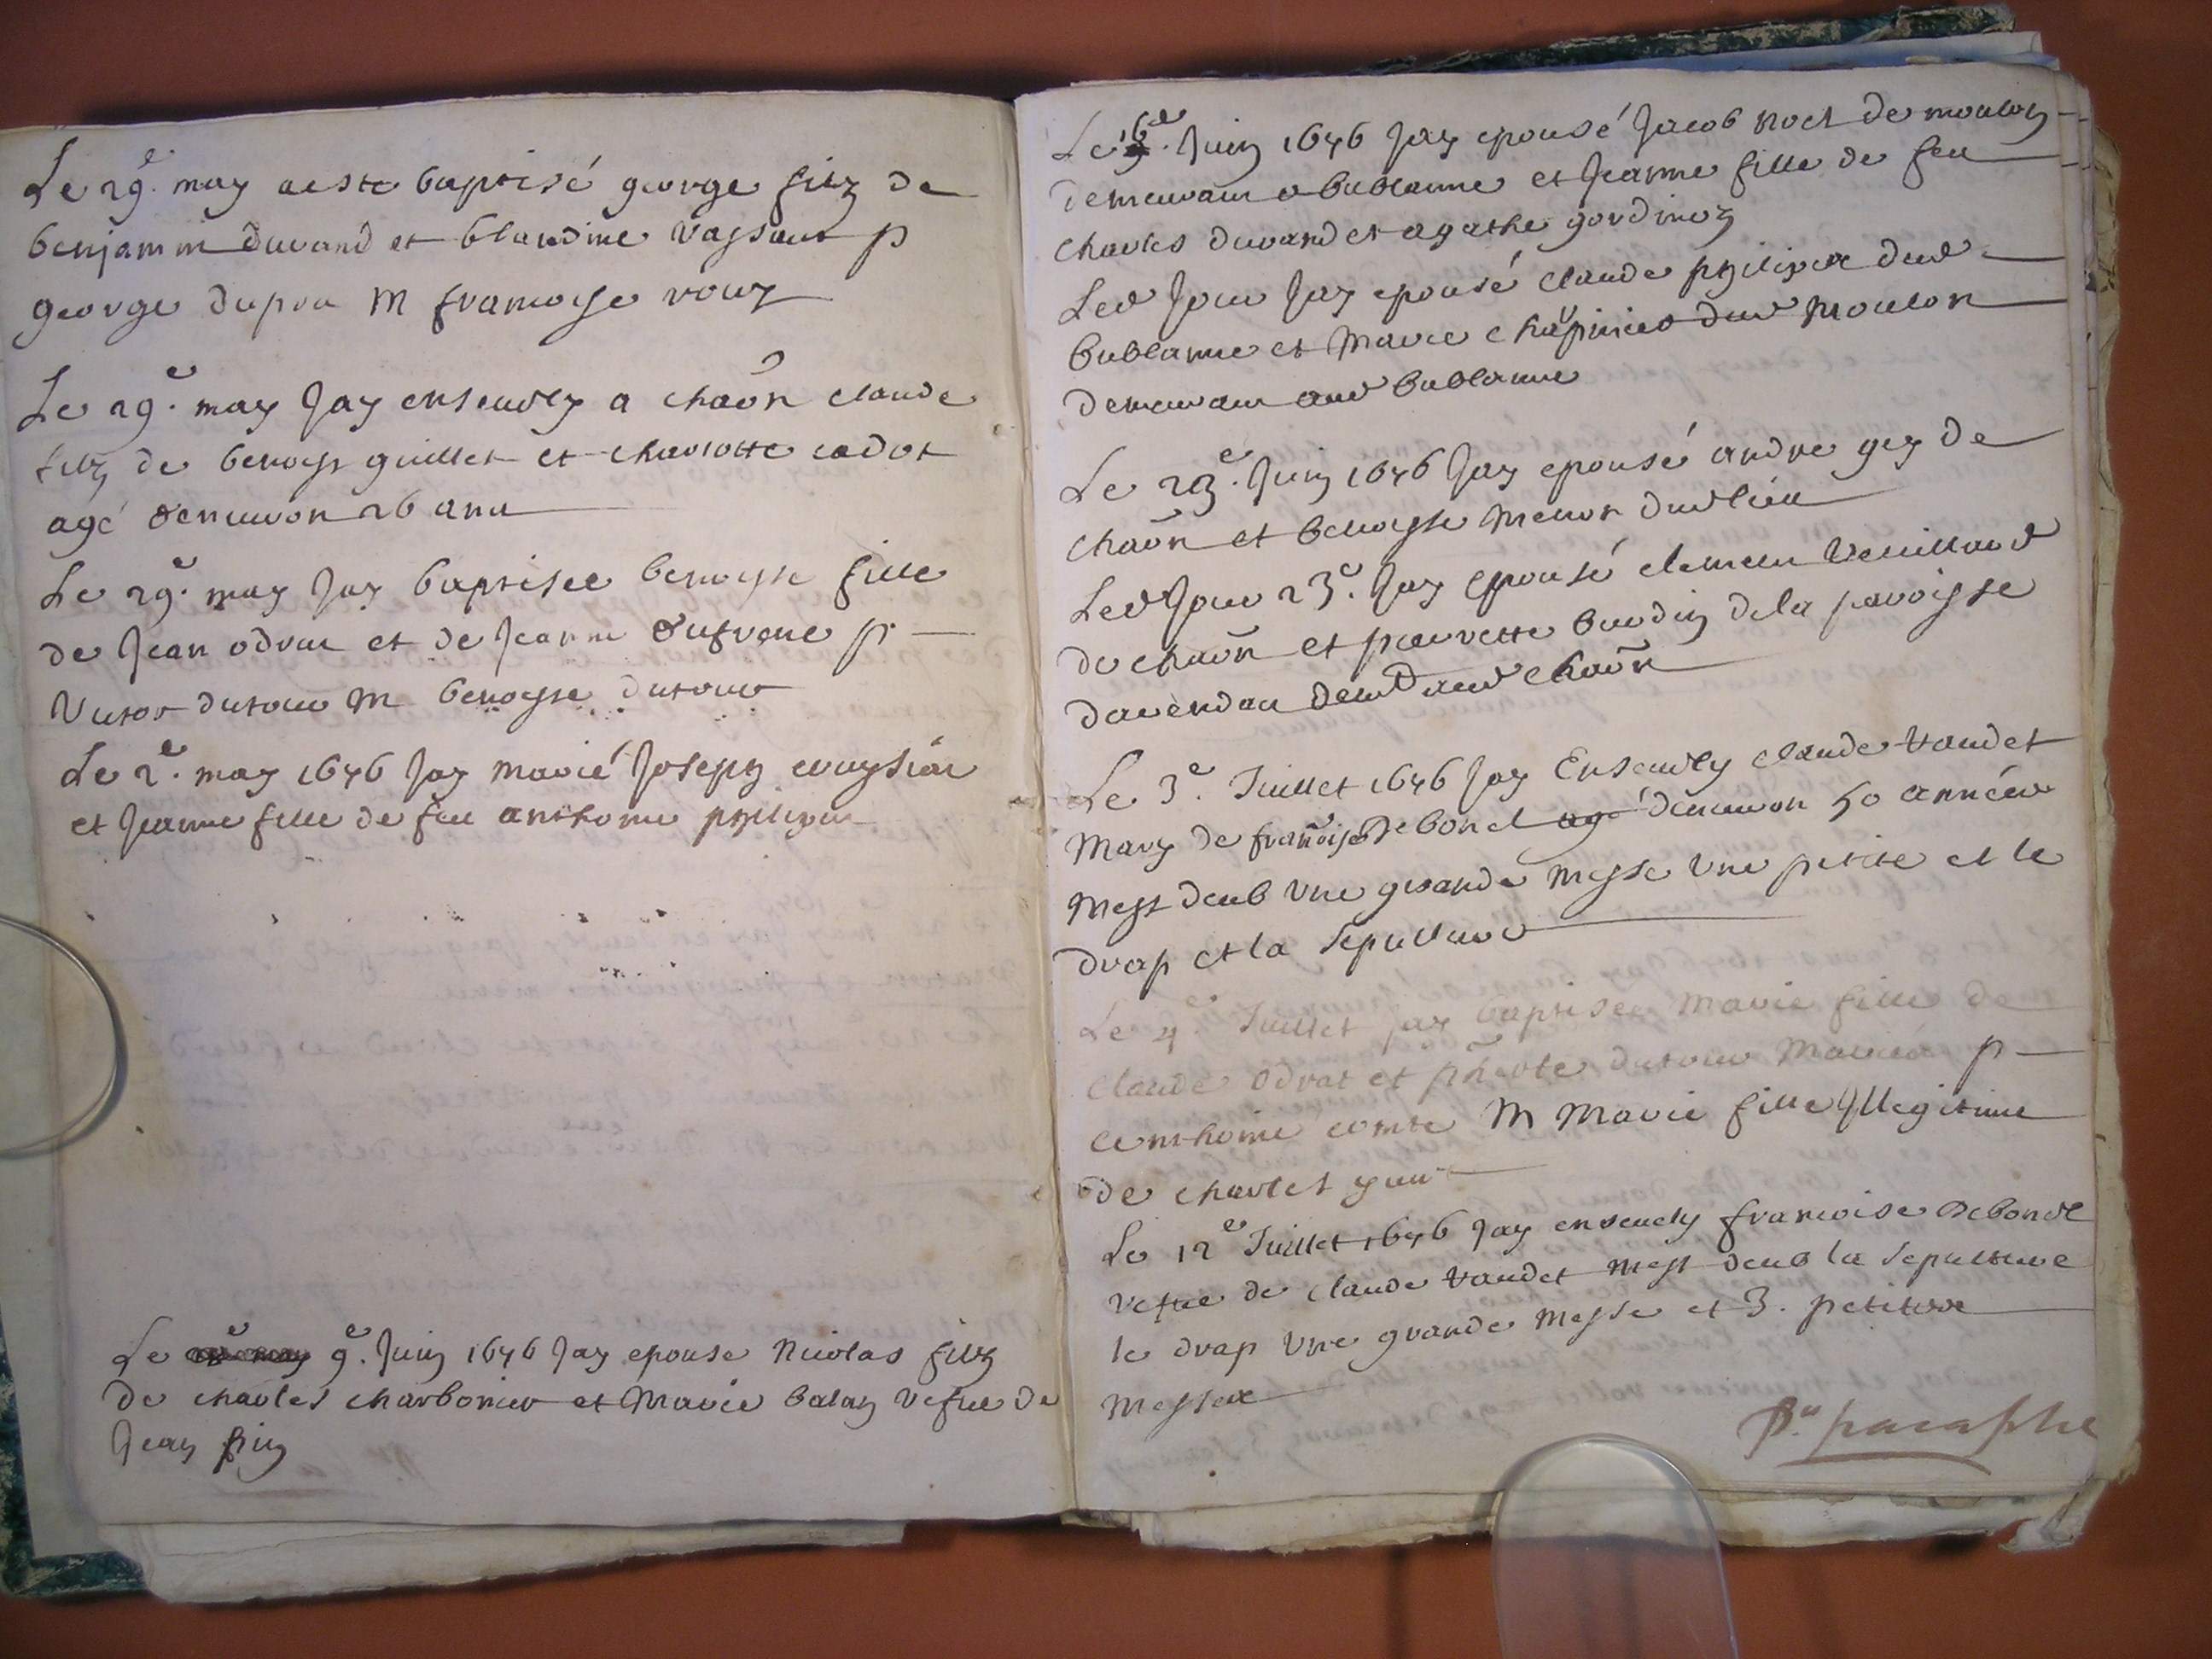 Le 29e. may aeste baptisé george filz de
benjamin durand et blandine vassaur p
george dupra m francoise roux
Le 29e. may Jay ensevely a chaon claude
filz de benoist guillet et charlotte cadot
agé denviron 26 ans
Le 29e. may Jay baptisee benoiste fille
de Jean odrat et de Jeanne dufrene p
Victor dutour m benoyste dutour
Le 2e. may 1646 Jay marié Joseph
et Jeanne fille de feu anthoine philipon
Le 9e. Juin 1646 Jay epouse Nicolas filz
de charles charbonier et Marie balay vefue de
Jean
Le 16e. Juin 1646 Jay epousé Jacob noel de moulon
demeurant a bublanne et Jeanne fille de feu
charles durand et agathe gordinoz
Led Jour Jay epousé claude philipon dud
bublanne et Marie chapinier dud moulon
demeurant aud bublanne
Le 23e. Juin 1646 Jay epousé andre gey de
chaon et benoyste menon dud lieu
Led Jour 23e. Jay epousé clement veuilland
de chaon et pierrette boudin dela paroisse
aud chaon
Le 3e. Juillet 1646 Jay Ensevely claude vaudet
Mary de francoise debond agé denviron 50 années
mest deub vne grande messe vne petite et le
drap et la sepulture
Le 4e. Juillet jay baptisee Marie fille de
claude odrat et dutour Mariés p
anthoine comte M Marie fille Illegitime
de charlet
Le 12e Juillet 1646 Jay ensevely francoise debond
vefue de claude vaudet mest deub la sepulture
le drap vne grande messe et 3. petites
messes
paraphe